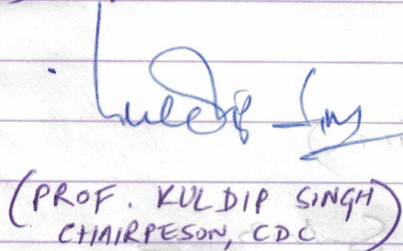 Kuldip Singh
(PROF. KULDIP SINGH)
CHAIRPESON, CDC